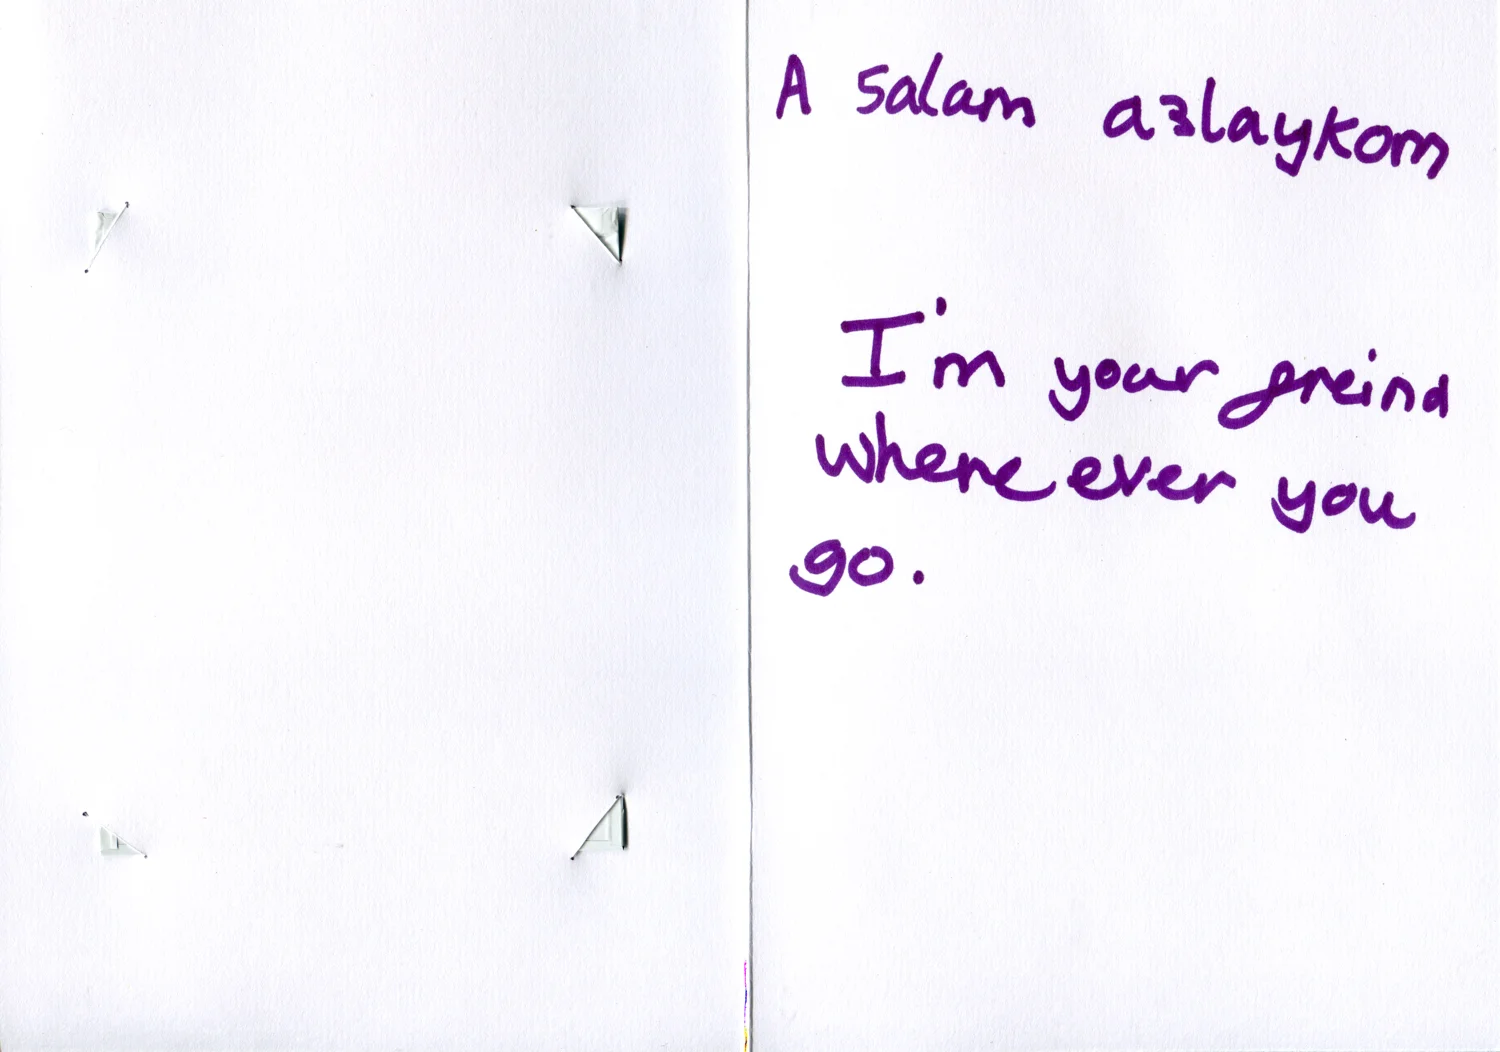 A salam a3laykom
I'm your freind
where ever you
go.